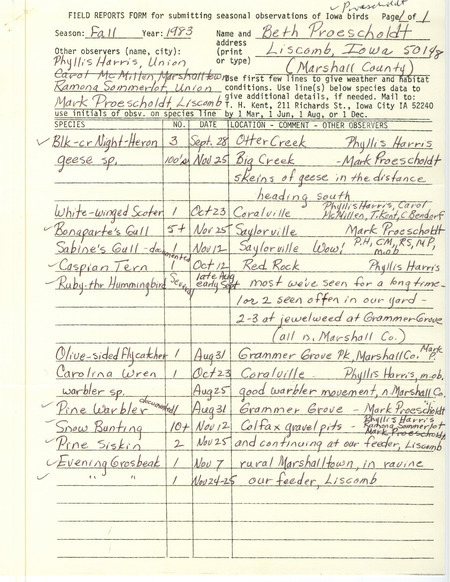 ✓ Proescholdt
FIELD REPORTS FORM for submitting seasonal observations of Iowa birds Page 1 of 1
Season: Fall Year: 1983 Name and address (print or type) Beth Proescholdt
Liscomb, Iowa 50148
(Marshall County)
Other observers (name, city):
Phyllis Harris, Union
Carol McMillen, Marshalltown
Ramona Sommerlot, Union
Mark Proescholdt Liscomb
Use first few lines to give weather and habitat
conditions. Use line(s) below species data to
give additional details, if needed. Mail to:
T. H. Kent, 211 Richards St., Iowa City IA 52240
use initials of obsv. on species line by 1 Mar, 1 Jun, 1 Aug, or 1 Dec.
SPECIES NO. DATE LOCATION - COMMENT - OTHER OBSERVERS
✓ Blk-cr Night-Heron 3 Sept. 28 Otter Creek Phyllis Harris
geese sp. 100's Nov 25 Big Creek - Mark Proescholdt
skeins of geese in the distance
heading south
White-winged Scoter 1 Oct 23 Coralville Phyllis Harris, Carol McMillen, T. Kent, C. Bendorf
✓ Bonaparte's Gull 5+ Nov 25 Saylorville Mark Proescholdt
Sabine's Gull - documented 1 Nov 12 Saylorville Wow! P.H, CM, RS, M.P, m.ob
✓ Caspian Tern 1 Oct 12 Red Rock Phyllis Harris
✓ Ruby-thr Hummingbird Several late Aug early Sept most we've seen for a long time -
1 or 2 seen often in our yard -
2-3 at jewelweed at Grammer Grove
(all n. Marshall Co.)
Olive-sided Flycatcher 1 Aug 31 Grammer Grove Pk, Marshall Co. Mark P.
Carolina Wren 1 Oct 23 Coralville - Phyllis Harris, m.ob.
warbler sp. Aug 25 good warbler movement, n. Marshall Co.
✓ Pine Warbler documented 1 Aug 31 Grammer Grove - Mark Proescholdt
✓ Snow Bunting 10+ Nov 12 Colfax gravel pits - Phyllis Harris Ramona Sommerlot Mark Proescholdt
✓ Pine Siskin 2 Nov 25 and continuing at our feeder, Liscomb
✓ Evening Grosbeak 1 Nov 7 rural Marshalltown, in ravine
✓ " " 1 Nov 24-25 our feeder, Liscomb